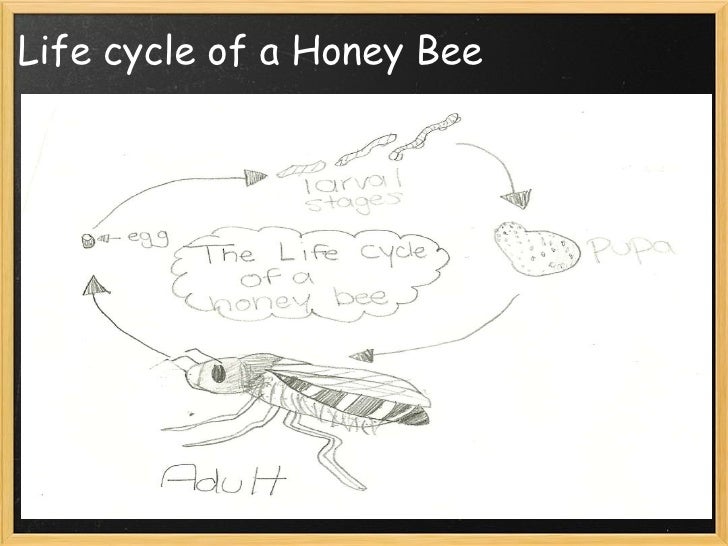 Life cycle of a Honey Bee
larval
stages
egg
The Life cycle
of a
honey bee
pupa
Adult